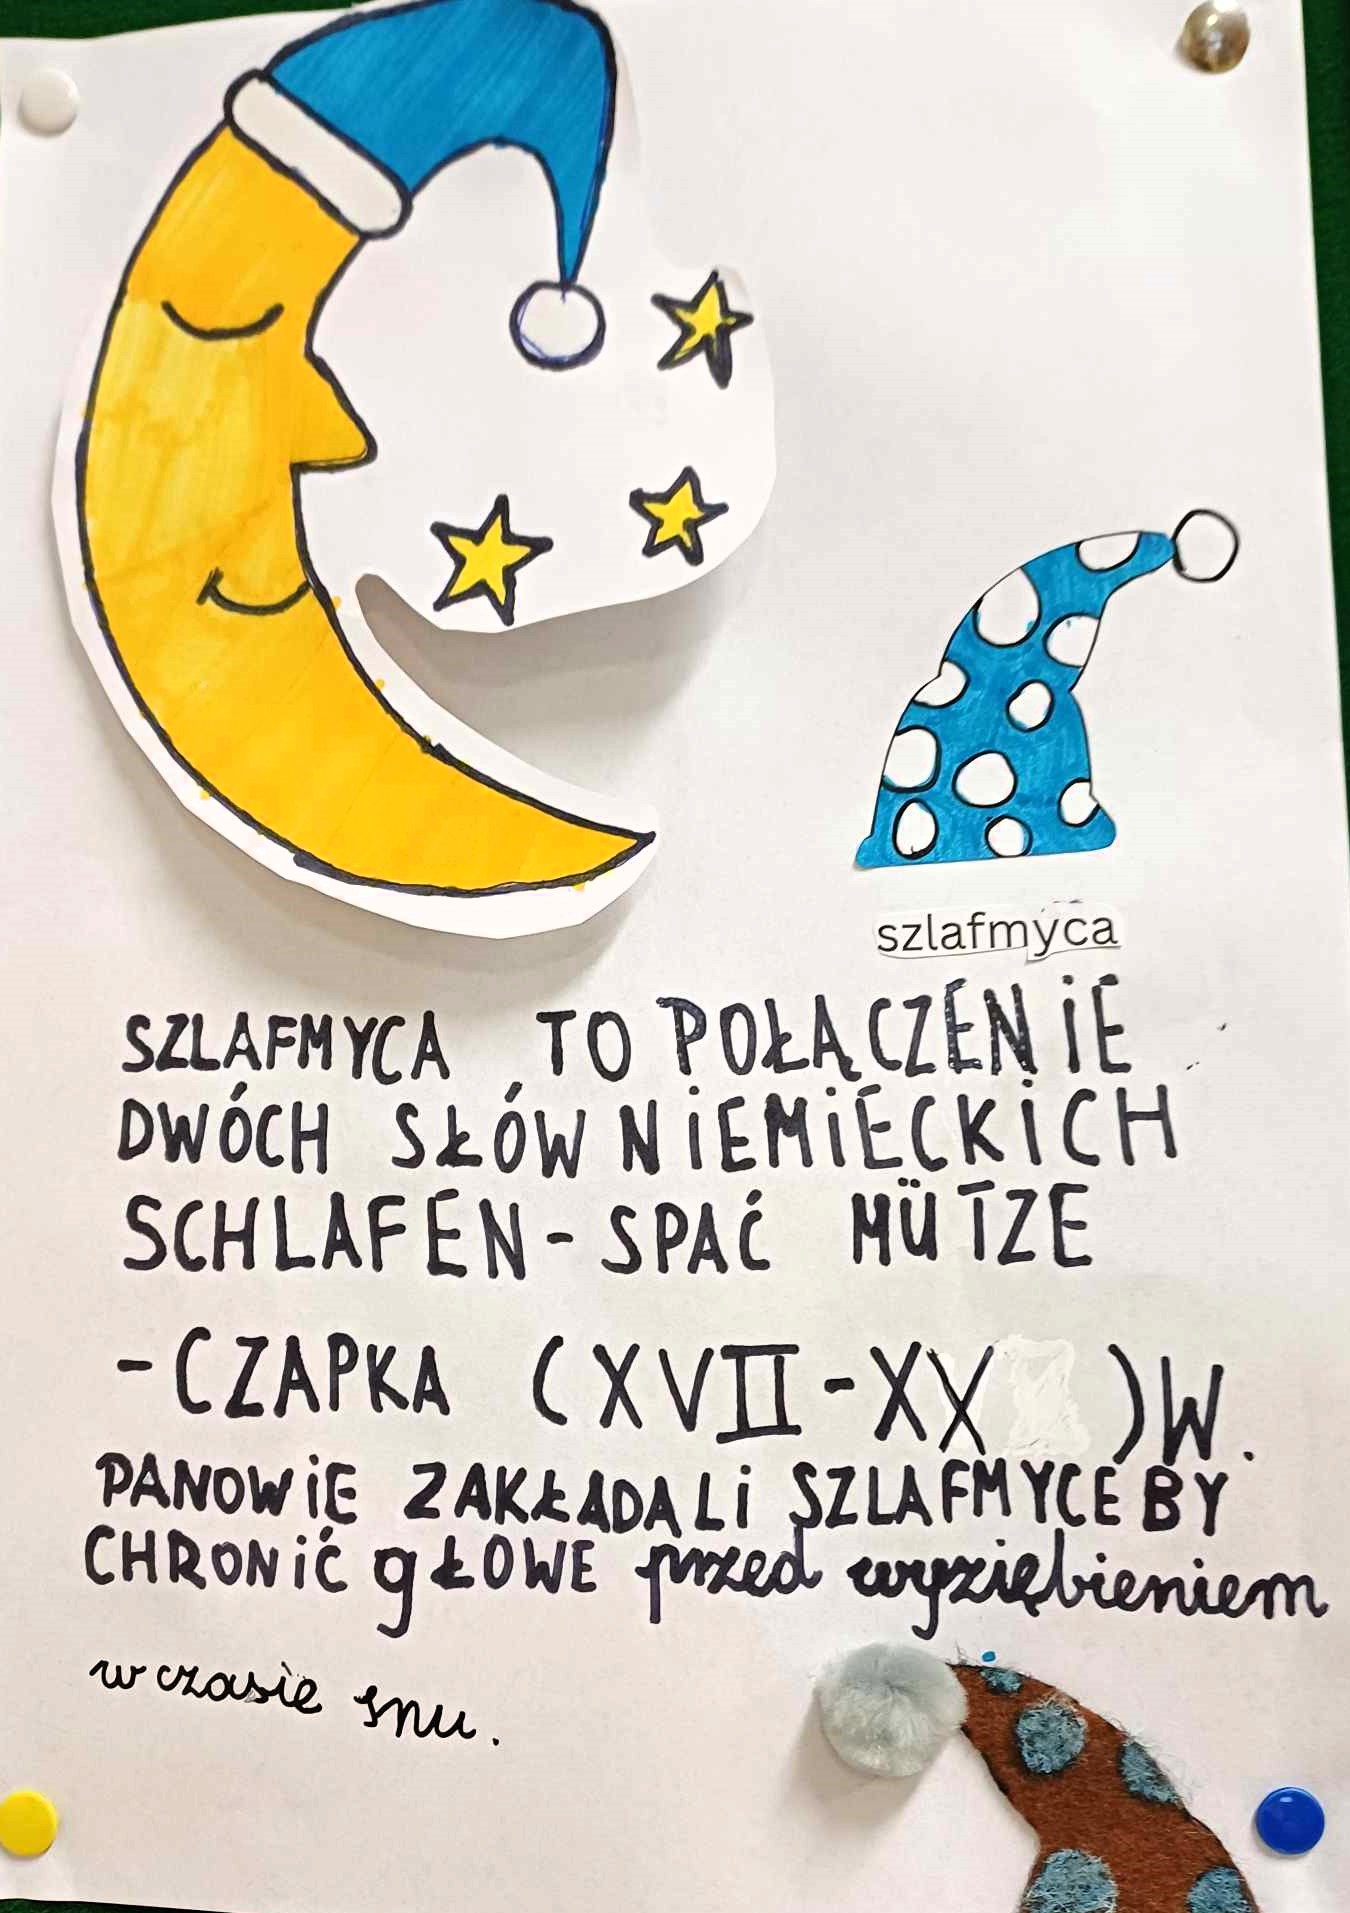 szlafmyca
SZLAFMYCA TO POŁĄCZENiE
DWÓCH SŁÓW NiEMiECKiCH
SCHLAFEN - SPAĆ MÜTZE
- CZAPKA (XVII - XX )W.
PANOWiE ZAKŁADALi SZLAFMYCE BY
CHRONiĆ gŁOWE przed wyziębieniem
w czasie snu.